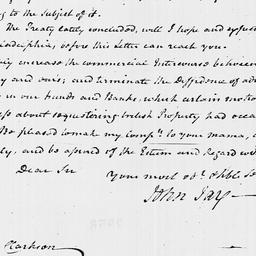 ng to the Subject of it.
The Treaty lately concluded, will I hope and
iladelphia, before this Letter can reach you.
increase the commercial Intercourse between
y and ours; and terminate the Diffidence of
in our funds and Banks, which certain motio
ss about sequestering british Property had occa
Be pleased to make my compts to your mama,
ly, and be assured of the Esteem and Regard with
Dear Sir
your most obt & hble Se
John Jay
Clarkson